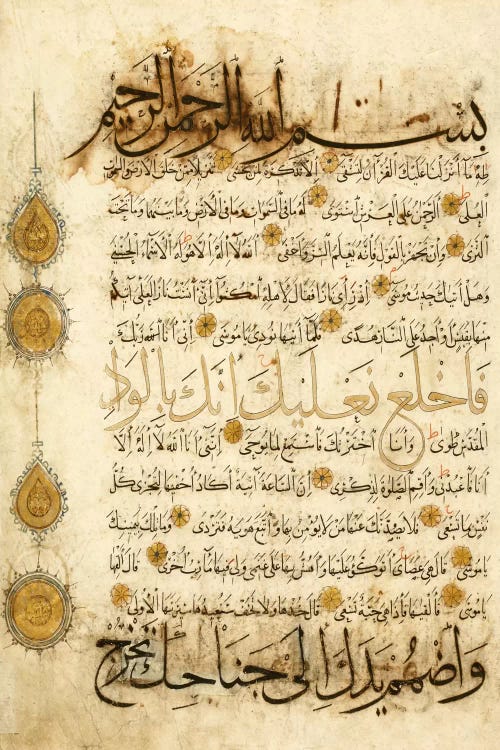 بسم الله الرحمن الرحيم
طه ما أنزلنا عليك القرآن لتشقى إلا تذكرة لمن يخشى تنزيلا ممن خلق الأرض والسموات
العلى الرحمن على العرش استوى له ما في السموات وما في الأرض وما بينهما وما تحت
الثرى وإن تجهر بالقول فإنه يعلم السر وأخفى الله لا إله إلا هو له الأسماء الحسنى
وهل أتيك حديث موسى إذ رأى نارا فقال لأهله امكثوا إني آنست نارا لعلي آتيكم
منها بقبس أو أجد على النار هدى فلما أتيها نودي يا موسى إني أنا ربك
فاخلع نعليك إنك بالواد
المقدس طوى وأنا اخترتك فاستمع لما يوحى إنني أنا الله لا إله إلا
أنا فاعبدني وأقم الصلوة لذكري إن الساعة آتية أكاد أخفيها لتجزى كل
نفس بما تسعى فلا يصدنك عنها من لا يؤمن بها واتبع هويه فتردى وما تلك بيمينك
يا موسى قال هي عصاي أتوكؤ عليها وأهش بها على غنمي ولي فيها مآرب أخرى قال ألقها
يا موسى فألقيها فإذا هي حية تسعى قال خذها ولا تخف سنعيدها سيرتها الأولى
واضمم يدك إلى جناحك تخرج